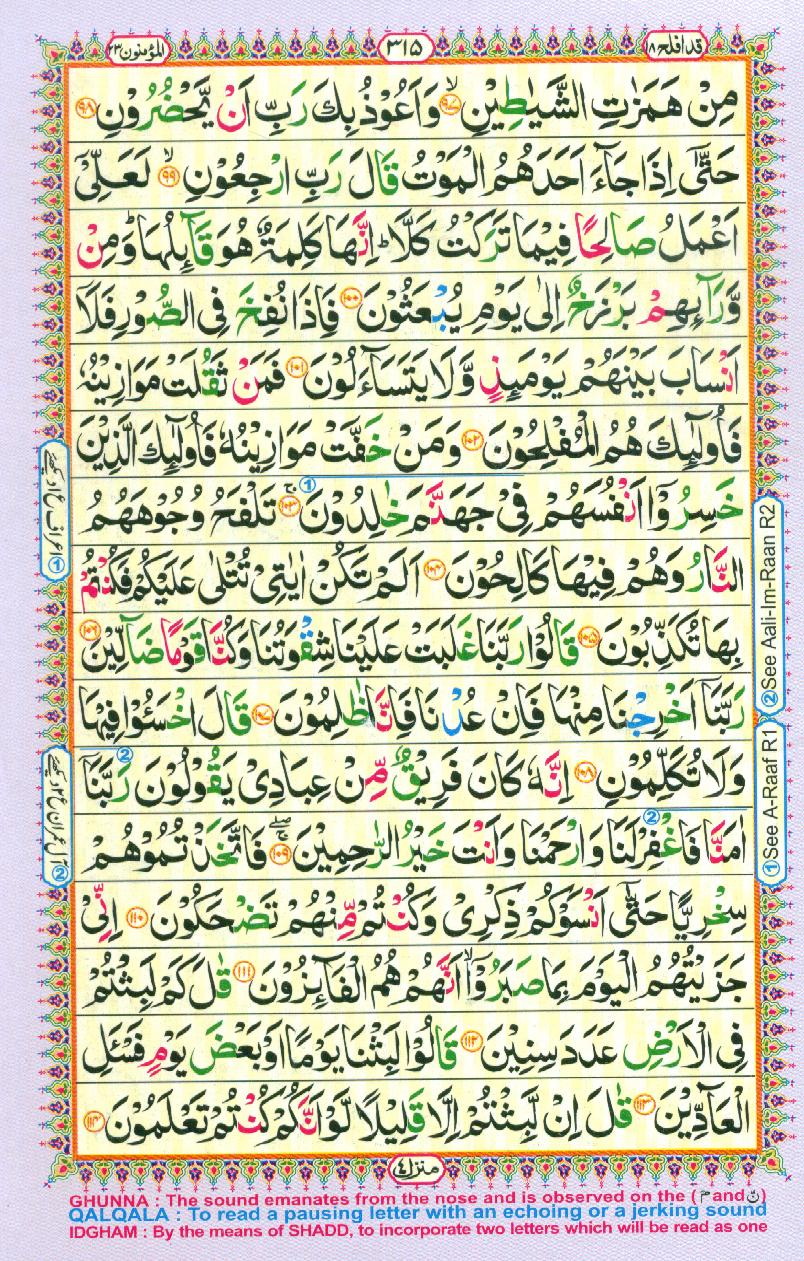 قدافلح ١٨
٣١٥
المؤمنون ٢٣
مِنْ هَمَزٰتِ الشَّيٰطِيْنِ ۙ﴿۹۷﴾ وَاَعُوْذُ بِكَ رَبِّ اَنْ يَّحْضُرُوْنِ ﴿۹۸﴾
حَتّٰۤى اِذَا جَآءَ اَحَدَهُمُ الْمَوْتُ قَالَ رَبِّ ارْجِعُوْنِ ۙ﴿۹۹﴾ لَعَلِّىْۤ
اَعْمَلُ صَالِحًا فِيْمَا تَرَكْتُ كَلَّا ؕ اِنَّهَا كَلِمَةٌ هُوَ قَآئِلُهَا ؕ وَمِنْ
وَّرَآئِهِمْ بَرْزَخٌ اِلٰى يَوْمِ يُبْعَثُوْنَ ﴿۱۰۰﴾ فَاِذَا نُفِخَ فِى الصُّوْرِ فَلَاۤ
اَنْسَابَ بَيْنَهُمْ يَوْمَئِذٍ وَّلَا يَتَسَآءَلُوْنَ ﴿۱۰۱﴾ فَمَنْ ثَقُلَتْ مَوَازِيْنُهٗ
فَاُولٰٓئِكَ هُمُ الْمُفْلِحُوْنَ ﴿۱۰۲﴾ وَمَنْ خَفَّتْ مَوَازِيْنُهٗ فَاُولٰٓئِكَ الَّذِيْنَ
خَسِرُوْۤا اَنْفُسَهُمْ فِىْ جَهَنَّمَ خٰلِدُوْنَ ۚ﴿۱۰۳﴾ ① تَلْفَحُ وُجُوْهَهُمُ
النَّارُ وَهُمْ فِيْهَا كَالِحُوْنَ ﴿۱۰۴﴾ اَلَمْ تَكُنْ اٰيٰتِىْ تُتْلٰى عَلَيْكُمْ فَكُنْتُمْ
بِهَا تُكَذِّبُوْنَ ﴿۱۰۵﴾ قَالُوْا رَبَّنَا غَلَبَتْ عَلَيْنَا شِقْوَتُنَا وَكُنَّا قَوْمًا ضَآلِّيْنَ ﴿۱۰۶﴾
رَبَّنَاۤ اَخْرِجْنَا مِنْهَا فَاِنْ عُدْنَا فَاِنَّا ظٰلِمُوْنَ ﴿۱۰۷﴾ قَالَ اخْسَئُوْا فِيْهَا
وَلَا تُكَلِّمُوْنِ ﴿۱۰۸﴾ اِنَّهٗ كَانَ فَرِيْقٌ مِّنْ عِبَادِىْ يَقُوْلُوْنَ ② رَبَّنَاۤ
اٰمَنَّا فَاغْفِرْ لَنَا ② وَارْحَمْنَا وَاَنْتَ خَيْرُ الرّٰحِمِيْنَ ۚۖ﴿۱۰۹﴾ فَاتَّخَذْتُمُوْهُمْ
سِخْرِيًّا حَتّٰۤى اَنْسَوْكُمْ ذِكْرِىْ وَكُنْتُمْ مِّنْهُمْ تَضْحَكُوْنَ ﴿۱۱۰﴾ اِنِّىْ
جَزَيْتُهُمُ الْيَوْمَ بِمَا صَبَرُوْۤا ۙ اَنَّهُمْ هُمُ الْفَآئِزُوْنَ ﴿۱۱۱﴾ قٰلَ كَمْ لَبِثْتُمْ
فِى الْاَرْضِ عَدَدَ سِنِيْنَ ﴿۱۱۲﴾ قَالُوْا لَبِثْنَا يَوْمًا اَوْ بَعْضَ يَوْمٍ فَسْئَلِ
الْعَآدِّيْنَ ﴿۱۱۳﴾ قٰلَ اِنْ لَّبِثْتُمْ اِلَّا قَلِيْلًا لَّوْ اَنَّكُمْ كُنْتُمْ تَعْلَمُوْنَ ﴿۱۱۴﴾
② See Aali-Im-Raan R2
① See A-Raaf R1
منزل ٤
GHUNNA : The sound emanates from the nose and is observed on the (مّ and نّ)
QALQALA : To read a pausing letter with an echoing or a jerking sound
IDGHAM : By the means of SHADD, to incorporate two letters which will be read as one